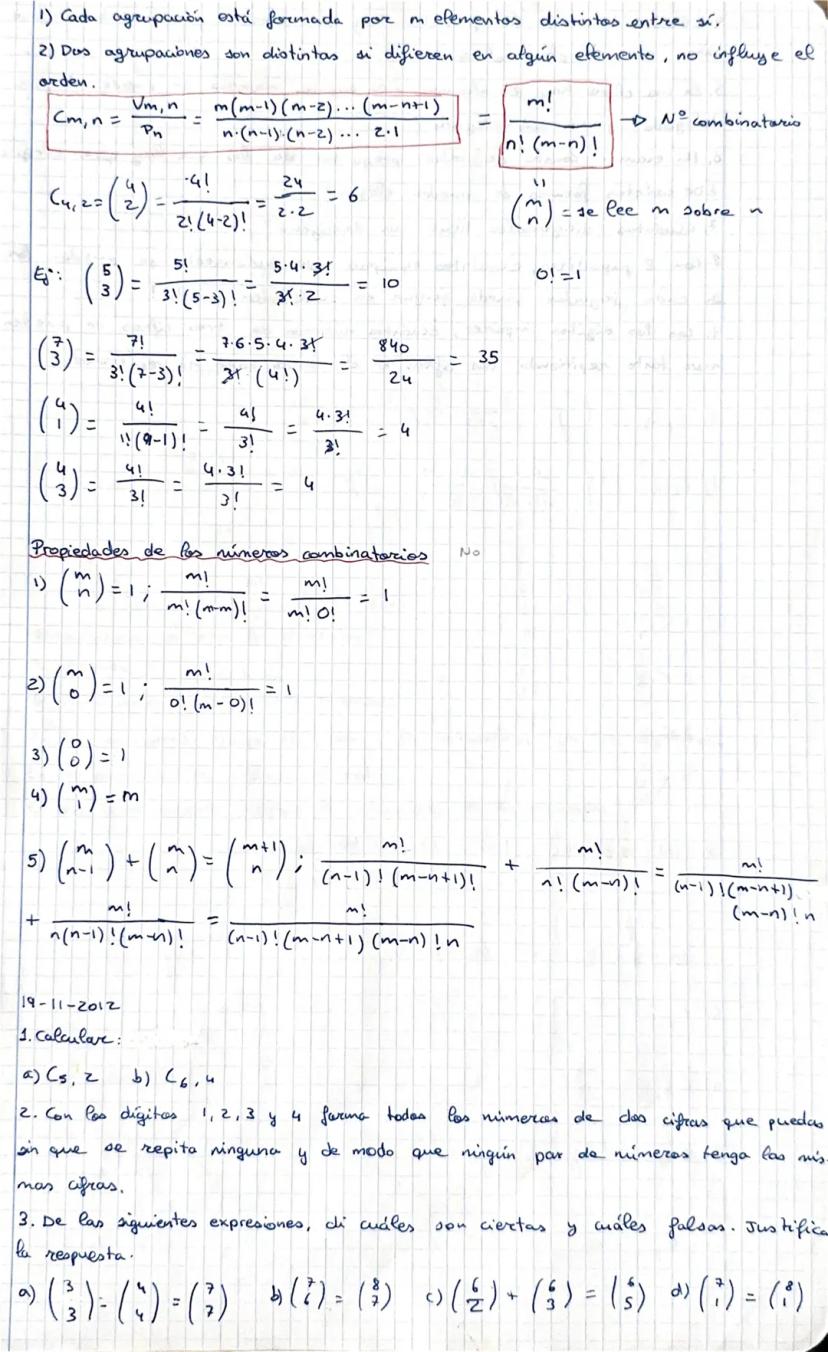 1) Cada agrupación está formada por m elementos distintos entre sí.
2) Dos agrupaciones son distintas si difieren en algún elemento, no influye el
orden.
Cm,n = Vm,n / Pn = m(m-1)(m-2)...(m-n+1) / n·(n-1)·(n-2)... 2·1 = m! / n!(m-n)! → Nº combinatorio
C4,2 = (4 2) = 4! / 2!(4-2)! = 24 / 2·2 = 6
" (m n) = se lee m sobre n
Ej: (5 3) = 5! / 3!(5-3)! = 5·4·3! / 3!·2 = 10 0! = 1
(7 3) = 7! / 3!(7-3)! = 7·6·5·4·3! / 3!(4!) = 840 / 24 = 35
(4 1) = 4! / 1!(4-1)! = 4! / 3! = 4·3! / 3! = 4
(4 3) = 4! / 3! = 4·3! / 3! = 4
Propiedades de los números combinatorios No
1) (m n) = 1; m! / m!(m-m)! = m! / m! 0! = 1
2) (m 0) = 1; m! / 0!(m-0)! = 1
3) (0 0) = 1
4) (m 1) = m
5) (m n-1) + (m n) = (m+1 n); m! / (n-1)!(m-n+1)! + m! / n!(m-n)! = m! / (n-1)!(m-n+1)(m-n)!n
+ m! / n(n-1)!(m-n)! = m! / (n-1)!(m-n+1)(m-n)!n
19-11-2012
1. Calcular:
a) C5,2 b) C6,4
2. Con los dígitos 1, 2, 3 y 4 forma todos los números de dos cifras que puedas
sin que se repita ninguna y de modo que ningún par de números tenga las mis-
mas cifras.
3. De las siguientes expresiones, di cuáles son ciertas y cuáles falsas. Justifica
la respuesta.
a) (3 3) = (4 4) = (7 7) b) (7 6) = (8 7) c) (6 2) + (6 3) = (6 5) d) (7 1) = (8 1)